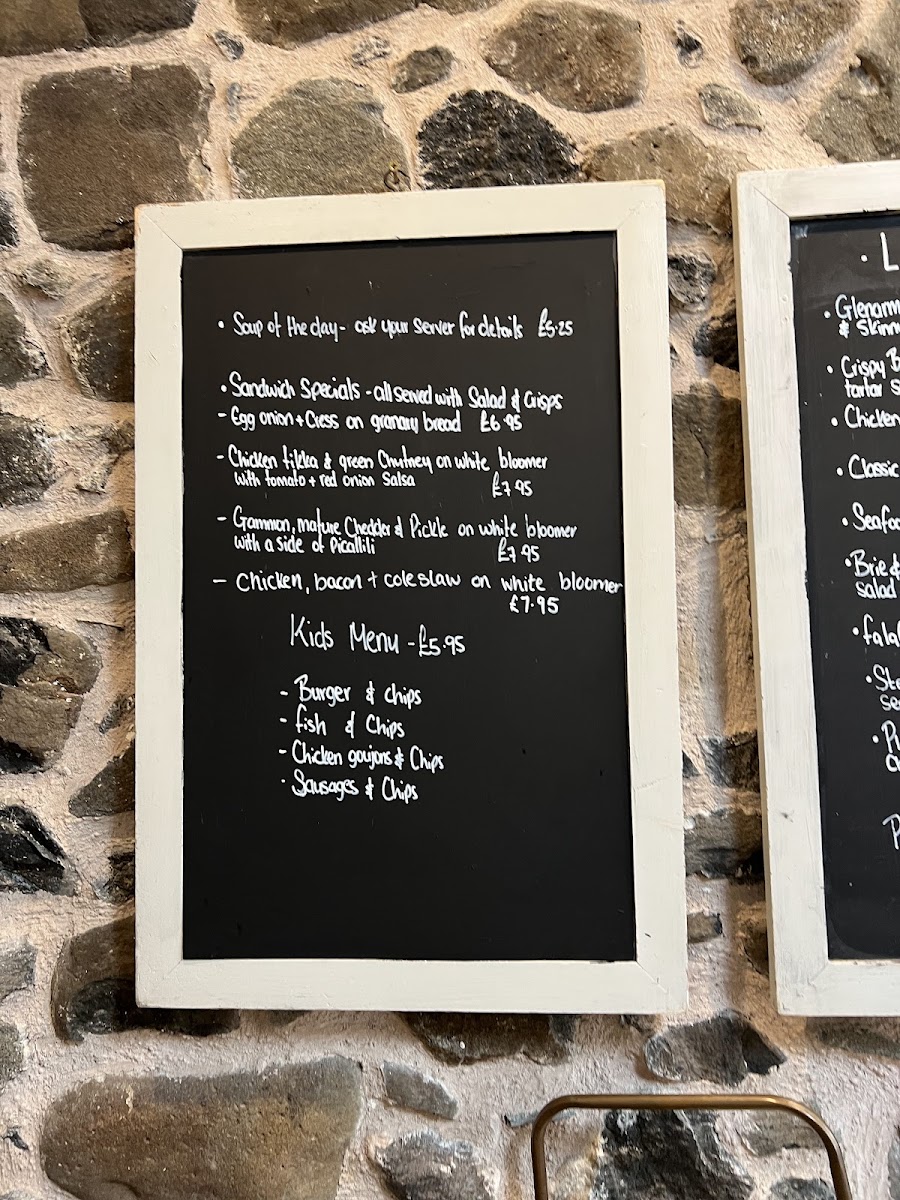 • Soup of the day - ask your server for details £5.25
• Sandwich Specials - all served with Salad & Crisps
- Egg onion + Cress on granary bread £6.95
- Chicken tikka & green Chutney on white bloomer
with tomato + red onion Salsa
£7.95
- Gammon, mature Chedder & Pickle on white bloomer
with a side of Picallili
£7.95
- Chicken, bacon + coleslaw on white bloomer
£7.95
Kids Menu - £5.95
- Burger & chips
- fish & Chips
- Chicken goujons & Chips
· Sausages & Chips
• L
• Glenarm
& Skinn
• Crispy B
tartar s
• Chicken
• Classic
• Seafoo
• Brie &
salad
• falaf
• Ste
se